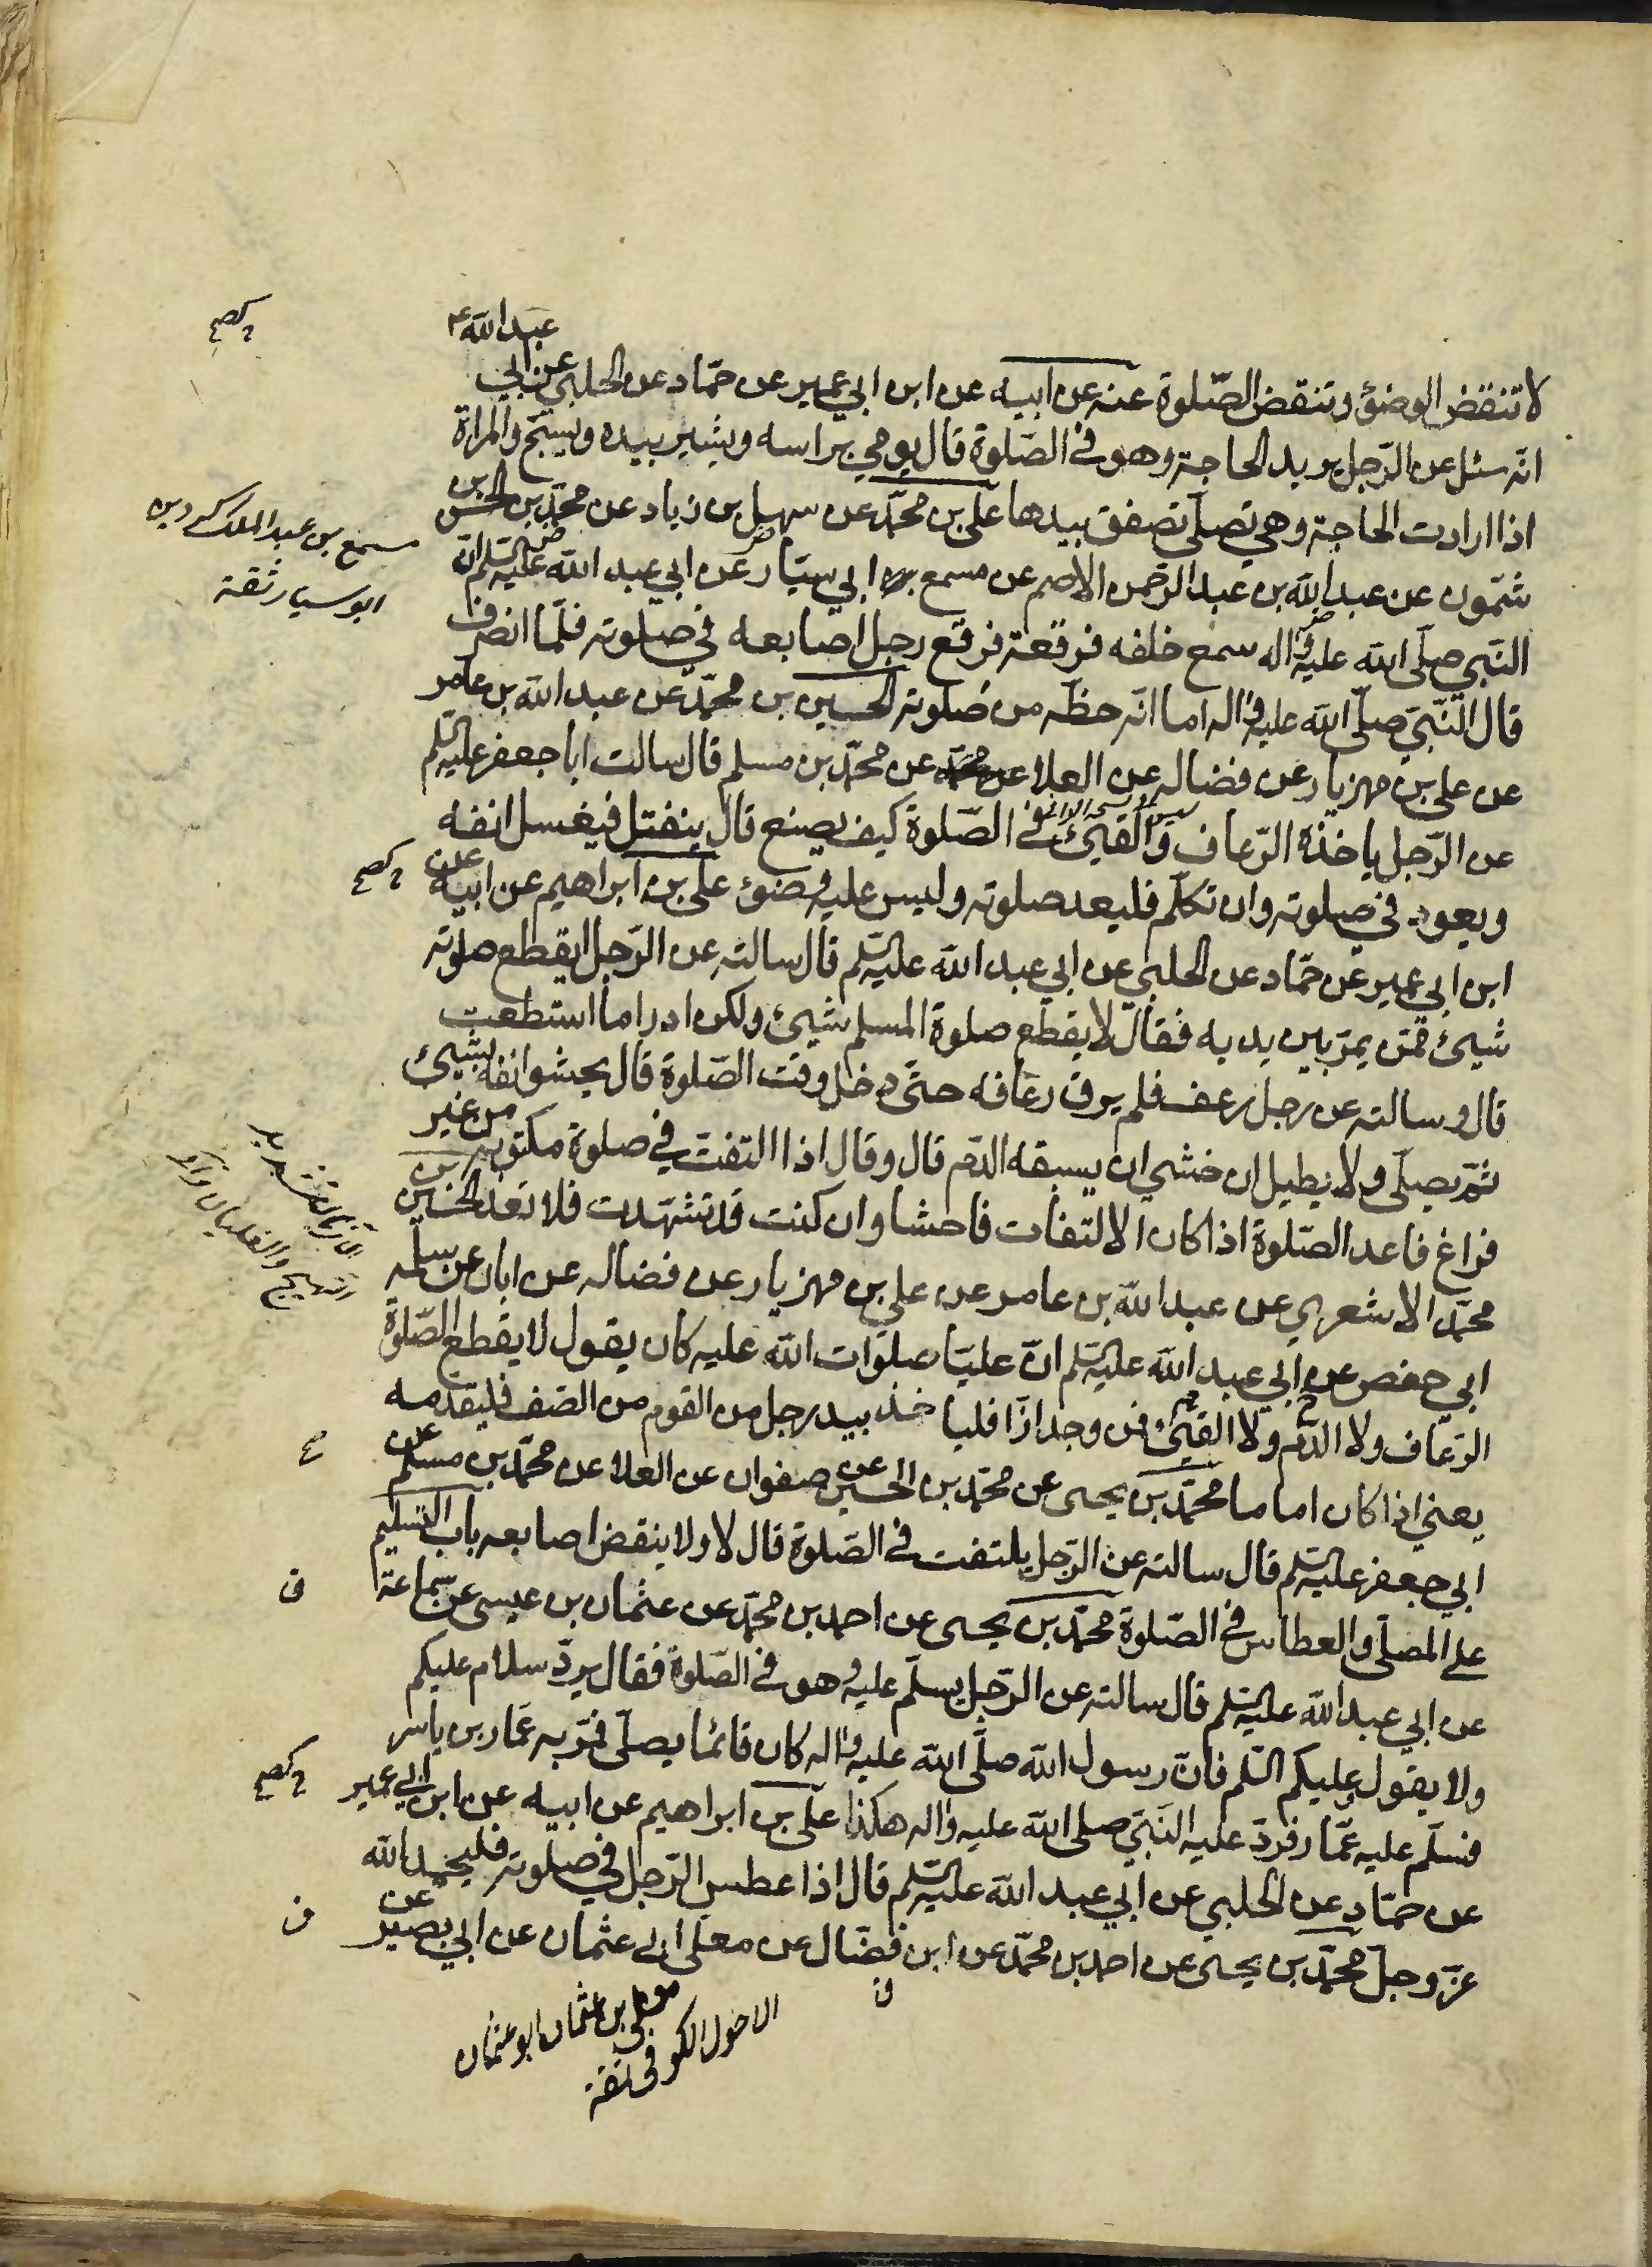 لا تنقض الوضوء وتنقض الصّلوة عنه عن ابيه عن ابن ابي عمير عن حمّاد عن الحلبي عن ابي عبدالله ع
انّه سئل عن الرّجل يريد الحاجة وهو في الصّلوة قال يومي براسه ويشير بيده ويسبّح والمراة
اذا ارادت الحاجة وهي تصلّي تصفق بيدها علي بن محمّد عن سهل بن زياد عن محمّد بن الحسن بن
شمّون عن عبد الله بن عبد الرّحمن الاصم عن مسمع ابي سيّار عن ابي عبد الله عليه السّلم انّ
النّبي صلّى الله عليه واله سمع خلفه فرقعة فرقع رجل اصابعه في صلوته فلمّا انصرف
قال النّبيّ صلّى الله عليه واله اما انّه حظّه من صلوته الحسين بن محمّد عن عبد الله بن عامر
عن علي بن مهزيار عن فضاله عن العلا عن محمّد بن مسلم قال سالت ابا جعفر عليه السّلم
عن الرّجل ياخذه الرّعاف والقيئ في الصّلوة كيف يصنع قال ينفتل فيغسل انفه
ويعود في صلوته وان تكلّم فليعد صلوته وليس عليه وضوء علي بن ابراهيم عن ابيه عن
ابن ابي عمير عن حمّاد عن الحلبي عن ابي عبد الله عليه السّلم قال سالته عن الرّجل ايقطع صلوته
شيئ ممّن يمرّ بين يديه فقال لا يقطع صلوة المسلم شيئ ولكن ادرا ما استطعت
قال وسالته عن رجل رعف فلم يرق رعافه حتّى دخل وقت الصّلوة قال يحشو انفه بشيئ
ثمّ يصلّي ولا يطيل ان خشي ان يسبقه الدّم قال وقال اذا التفت في صلوة مكتوبة من غير
فراغ فاعد الصّلوة اذا كان الالتفات فاحشا وان كنت قد تشهّدت فلا تعد الحسين بن
محمّد الاشعري عن عبد الله بن عامر عن علي بن مهزيار عن فضاله عن ابان عن سلمه
ابي حفص عن ابي عبد الله عليه السّلم انّ عليّا صلوات الله عليه كان يقول لا يقطع الصّلوة
الرّعاف ولا الدّم ولا القيئ فمن وجد ازّا فلياخذ بيد رجل من القوم من الصّف فليقدّمه
يعني اذا كان اماما محمّد بن يحيى عن محمّد بن الحسين عن صفوان عن العلا عن محمّد بن مسلم عن
ابي جعفر عليه السّلم قال سالته عن الرّجل يلتفت في الصّلوة قال لا ولا ينقض اصابعه باب التّسليم
على المصلّي والعطاس في الصّلوة محمّد بن يحيى عن احمد بن محمّد عن عثمان بن عيسى عن سماعة
عن ابي عبد الله عليه السّلم قال سالته عن الرّجل يسلّم عليه وهو في الصّلوة فقال يردّ سلام عليكم
ولا يقول وعليكم السّلم فانّ رسول الله صلّى الله عليه واله كان قائما يصلّي فمرّ به عمّار بن ياسر
فسلّم عليه عمّار فردّ عليه النّبيّ صلى الله عليه واله هكذا علي بن ابراهيم عن ابيه عن ابن ابي عمير
عن حمّاد عن الحلبي عن ابي عبد الله عليه السّلم قال اذا عطس الرّجل في صلوته فليحمد الله
عزّ وجلّ محمّد بن يحيى عن احمد بن محمّد عن ابن فضّال عن معلى ابي عثمان عن ابي بصير عن
معلى بن عثمان ابو عثمان
الاحول الكوفي ثقة
مسمع بن عبد الملك كردين
ابو سيار ثقة